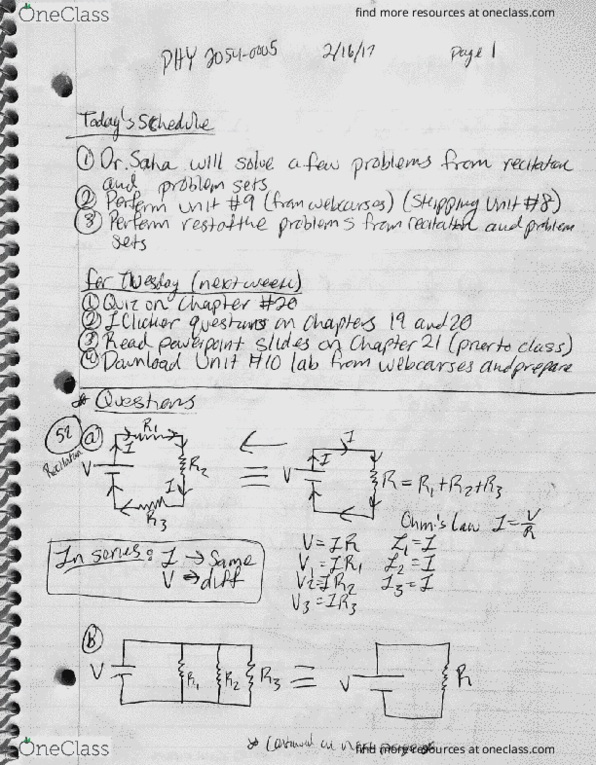 OneClass
find more resources at oneclass.com
PHY 2054-0005 2/16/17 Page 1
Today's Schedule
① Dr. Saha will solve a few problems from recitation
and problem sets
② Perform unit #9 (from webcourses) (Skipping Unit #8)
③ Perform rest of the problems from recitation and problem
sets
for Tuesday (next week)
① Quiz on Chapter #20
② IClicker questions on Chapters 19 and 20
③ Read powerpoint slides on Chapter 21 (prior to class)
④ Download Unit #10 lab from webcourses and prepare
* Questions
52 ⓐ
Recitation
R₁
I
V
R₂
I
R₃
≡
I
I
V
R = R₁+R₂+R₃
Ohm's Law I = V/R
V = IR I₁ = I
V₁ = IR₁ I₂ = I
V₂ = IR₂ I₃ = I
V₃ = IR₃
In series: I → Same
V → diff
ⓑ
V R₁ R₂ R₃ ≡ V R
* Continued on next page *
OneClass
find more resources at oneclass.com